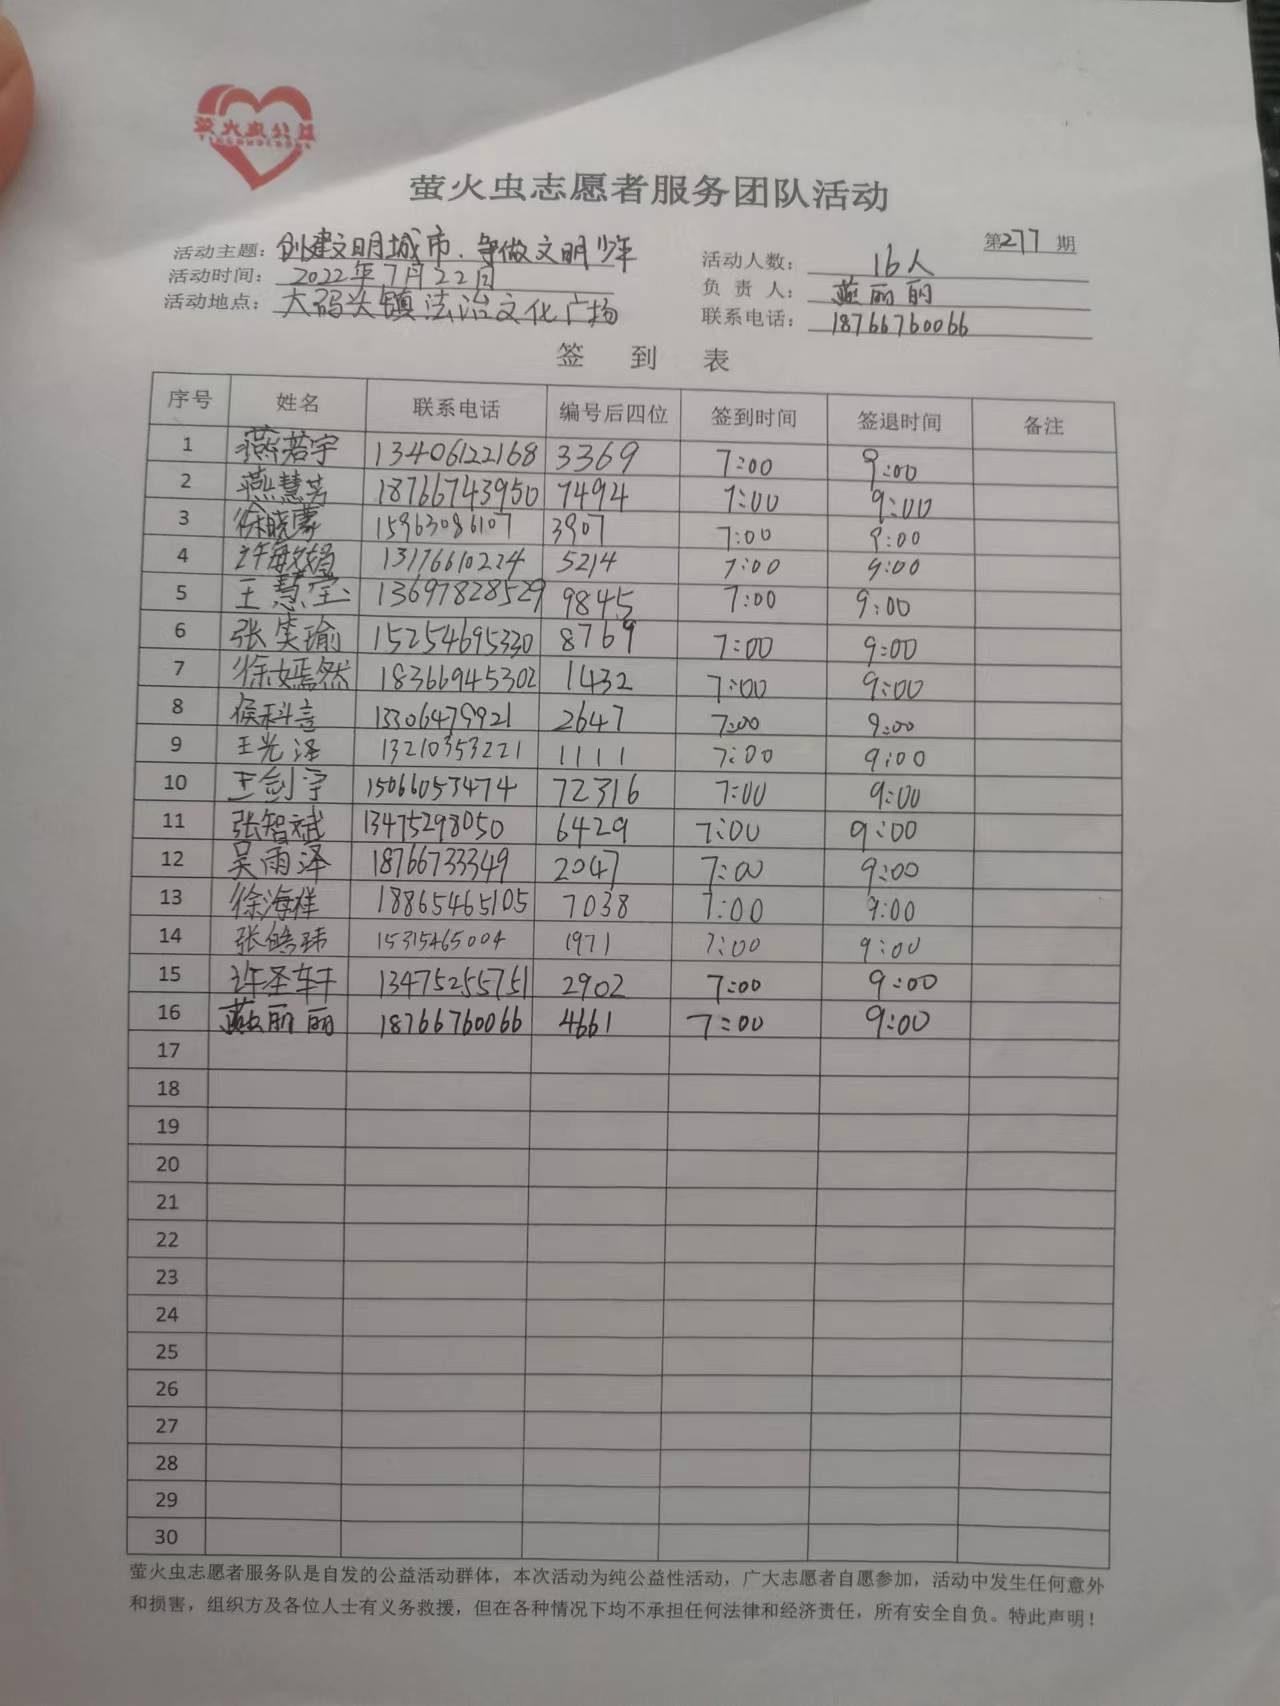 萤火虫公益
萤火虫志愿者服务团队活动
第277期
活动主题：创建文明城市、争做文明少年
活动人数：16人
活动时间：2022年7月22日
负责人：燕丽丽
活动地点：大码头镇法治文化广场
联系电话：18766760066
签到表
序号 姓名 联系电话 编号后四位 签到时间 签退时间 备注
1 燕若宇 13406122168 3369 7:00 9:00
2 燕慧芳 18766743950 7494 7:00 9:00
3 徐晓蒙 15963086107 3907 7:00 9:00
4 许敏娟 13176610224 5214 7:00 9:00
5 王慧莹 13697828529 9845 7:00 9:00
6 张笑瑜 15254695330 8769 7:00 9:00
7 徐嫣然 18366945302 1432 7:00 9:00
8 侯科言 13306479921 2647 7:00 9:00
9 王光泽 13210353221 1111 7:00 9:00
10 王剑宇 15066053474 72316 7:00 9:00
11 张智斌 13475298050 6429 7:00 9:00
12 吴雨泽 18766733349 2047 7:00 9:00
13 徐海祥 18865465105 7038 7:00 9:00
14 张皓玮 15315465004 1971 7:00 9:00
15 许圣轩 13475255751 2902 7:00 9:00
16 燕丽丽 18766760066 4661 7:00 9:00
17
18
19
20
21
22
23
24
25
26
27
28
29
30
萤火虫志愿者服务队是自发的公益活动群体，本次活动为纯公益性活动，广大志愿者自愿参加，活动中发生任何意外
和损害，组织方及各位人士有义务救援，但在各种情况下均不承担任何法律和经济责任，所有安全自负。特此声明！